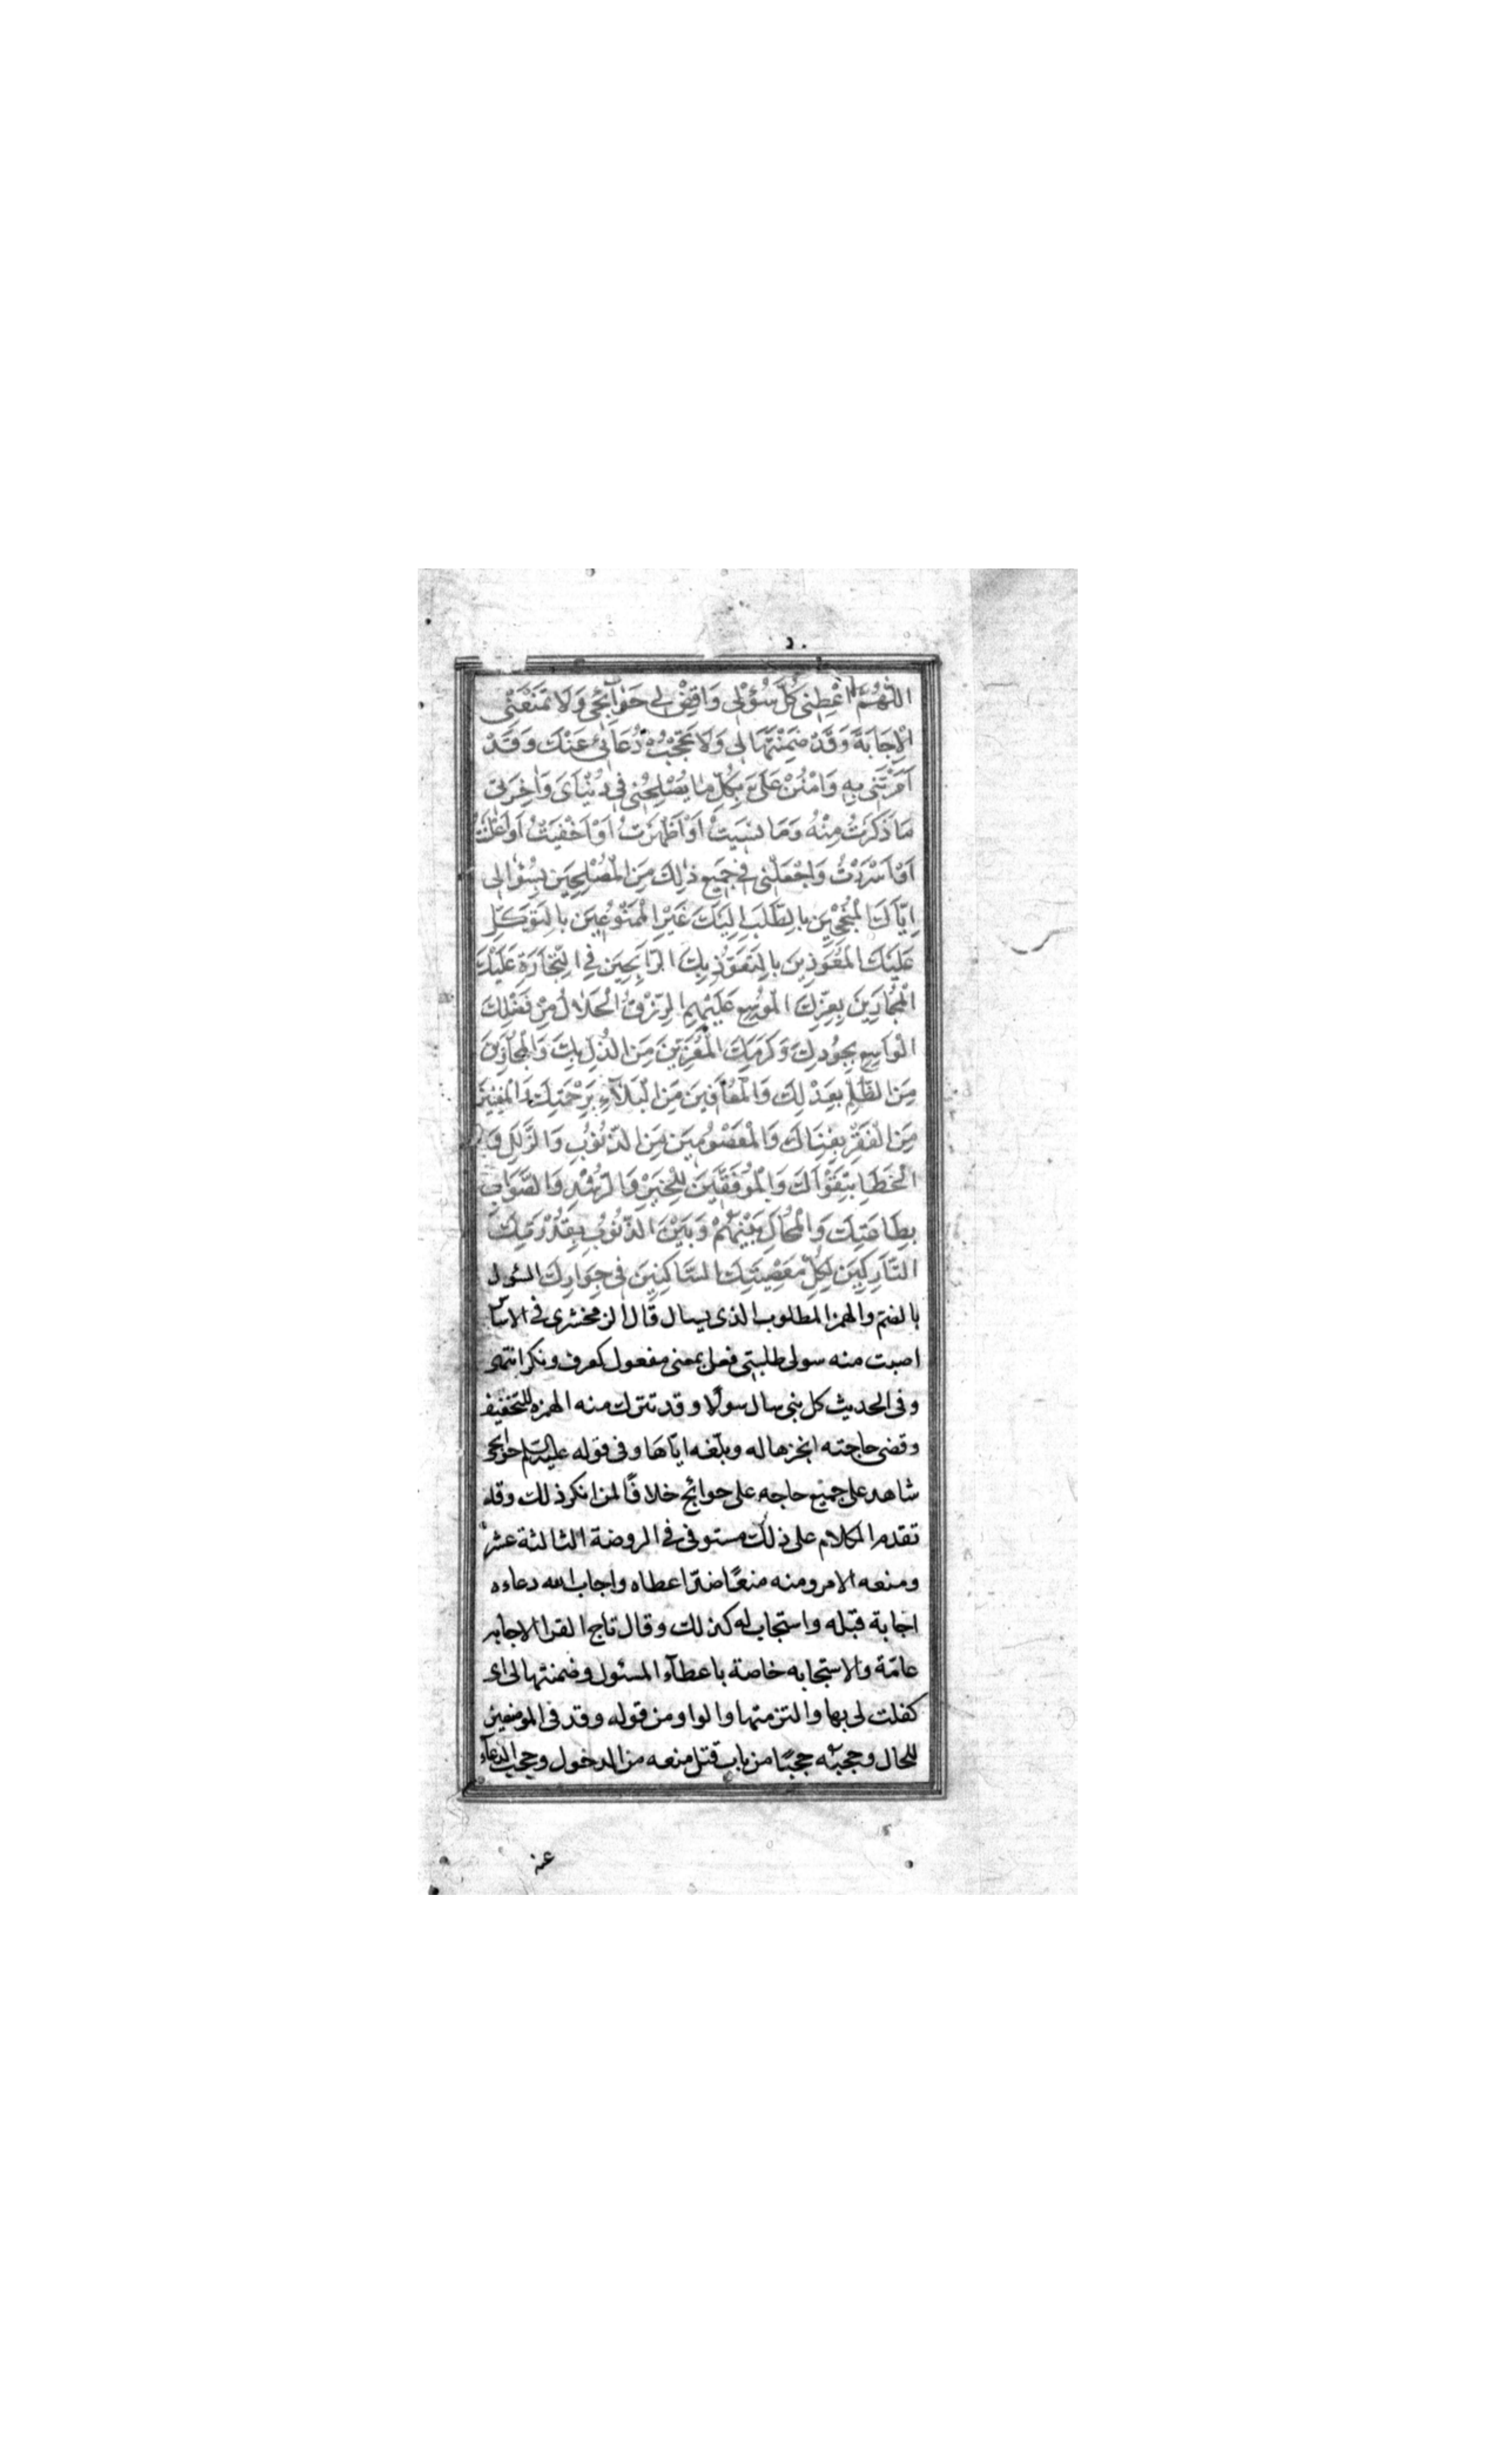 اللَّهُمَّ اَعْطِنِي كُلَّ سُؤْلِي وَاقْضِ لِي حَوَآئِجِي وَلَا تَمْنَعْنِي
الْاِجَابَةَ وَقَدْ ضَمِنْتَهَا لِي وَلَا تَحْجُبْ دُعَائِي عَنْكَ وَقَدْ
اَمَرْتَنِي بِهِ وَامْنُنْ عَلَيَّ بِكُلِّ مَا يُصْلِحُنِي فِي دُنْيَايَ وَاٰخِرَتِي
مَا ذَكَرْتُ مِنْهُ وَمَا نَسِيتُ اَوْ اَظْهَرْتُ اَوْ اَخْفَيْتُ اَوْ اَعْلَنْتُ
اَوْ اَسْرَرْتُ وَاجْعَلْنِي فِي جَمِيعِ ذٰلِكَ مِنَ الْمُصْلِحِينَ بِسُؤَالِي
اِيَّاكَ الْمُنْجِحِينَ بِالطَّلَبِ اِلَيْكَ غَيْرِ الْمَمْنُوعِينَ بِالتَّوَكُّلِ
عَلَيْكَ الْمُعَوَّذِينَ بِالتَّعَوُّذِ بِكَ الرَّابِحِينَ فِي التِّجَارَةِ عَلَيْكَ
الْمُجَارِينَ بِعِزِّكَ الْمُوَسَّعِ عَلَيْهِمُ الرِّزْقُ الْحَلَالُ مِنْ فَضْلِكَ
الْوَاسِعِ بِجُودِكَ وَكَرَمِكَ الْمُعَزِّينَ مِنَ الذُّلِّ بِكَ وَالْمُجَارِينَ
مِنَ الظُّلْمِ بِعَدْلِكَ وَالْمُعَافَيْنَ مِنَ الْبَلَآءِ بِرَحْمَتِكَ وَالْمُغْنَيْنَ
مِنَ الْفَقْرِ بِغِنَاكَ وَالْمَعْصُومِينَ مِنَ الذُّنُوبِ وَالزَّلَلِ وَ
الْخَطَاِ بِتَقْوَاكَ وَالْمُوَفَّقِينَ لِلْخَيْرِ وَالرُّشْدِ وَالصَّوَابِ
بِطَاعَتِكَ وَالْمُحَالِ بَيْنَهُمْ وَبَيْنَ الذُّنُوبِ بِقُدْرَتِكَ
التَّارِكِينَ لِكُلِّ مَعْصِيَتِكَ السَّاكِنِينَ فِي جِوَارِكَ السؤل
بالضم والهمز المطلوب الذي يسال قال الزمخشري في الاساس
اصبت منه سولي طلبتي فعل بمعنى مفعول كعرف ونكر انتهى
وفي الحديث كل نبي سال سولًا وقد تترك منه الهمزه للتخفيف
وقضى حاجته انجزها له وبلّغه ايّاها وفي قوله عليه السلم حوايجي
شاهد على جميع حاجه على حوائج خلافًا لمن انكر ذلك وقد
تقدم الكلام على ذلك مستوفى في الروضة الثالثة عشر
ومنعه الامر ومنه منعًا ضد اعطاه واجاب الله دعاءه
اجابة قبله واستجاب له كذلك وقال تاج القرا الاجابه
عامّة والاستجابه خاصة باعطآء المسئول وضمنتها لي اي
كفلت لي بها والتزمتها والواو من قوله وقد في الموضعين
للحال وحجبه حجبًا من باب قتل منعه من الدخول وحجب الدعآء
عنه